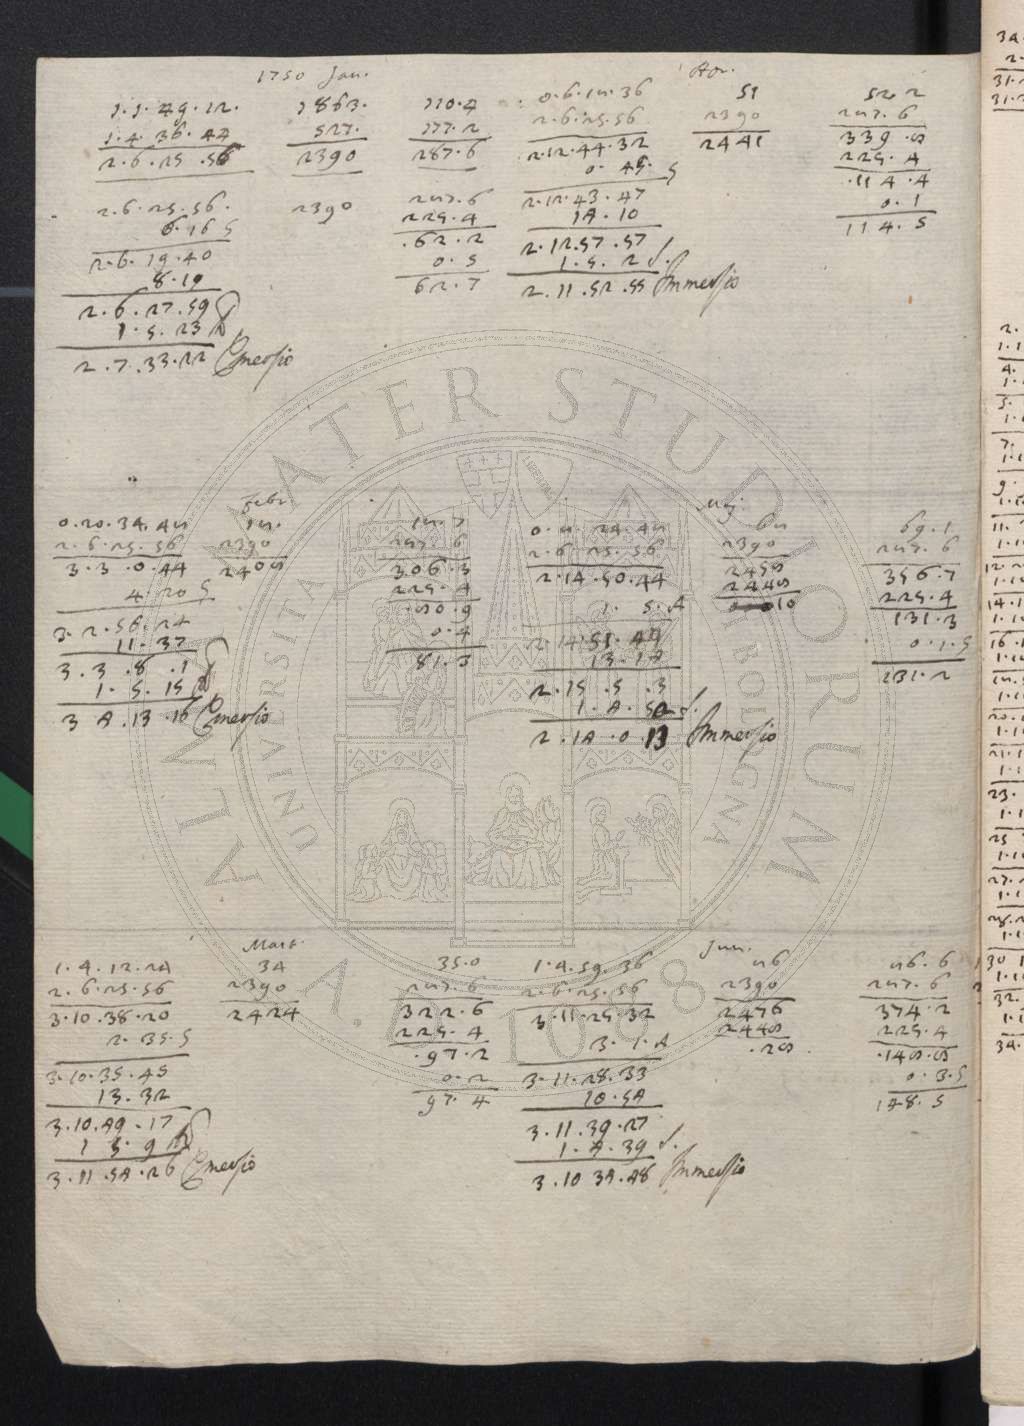 1750 Jan.
1.1.49.12. 1863. 110.4
1.4.36.44 527. 177.2
2.6.25.56 2390 287.6
2.6.25.56. 2390 287.6
6.16 S 225.4
2.6.19.40 .62.2
8.19 0.5
2.6.27.59 62.7
1.5.23 A
2.7.33.22 Emersio
Apr.
0.6.18.36 51 52.2
2.6.25.56 2390 287.6
2.12.44.32 2441 339.8
0.45. S 225.4
2.12.43.47 .114.4
14.10 0.1
2.12.57.57 114.5
1.5.2 S.
2.11.52.55 Immersio
Febr.
0.20.34.48 18. 18.7
2.6.25.56 2390 287.6
3.3.0.44 2408 306.3
4.20 S 225.4
3.2.56.24 .80.9
11.37 0.4
3.3.8.1 81.3
1.5.15 A
3.4.13.16 Emersio
Maj.
0.8.24.48 68 69.1
2.6.25.56 2390 287.6
2.14.50.44 2458 356.7
1.5.A 2448 225.4
2.14.51.49 10 131.3
13.14 0.1.5
2.15.5.3 131.2
1.4.50 S.
2.14.0.13 Immersio
Mart.
1.4.12.24 34 35.0
2.6.25.56 2390 287.6
3.10.38.20 2424 322.6
2.35.S 225.4
3.10.35.45 .97.2
13.32 0.2
3.10.49.17 97.4
1.5.9 A
3.11.54.26 Emersio
Jun.
1.4.59.36 86 86.6
2.6.25.56 2390 287.6
3.11.25.32 2476 374.2
3.1.A 2448 225.4
3.11.28.33 .28 .148.8
10.54 0.3.5
3.11.39.27 148.5
1.4.39 S.
3.10.34.48 Immersio